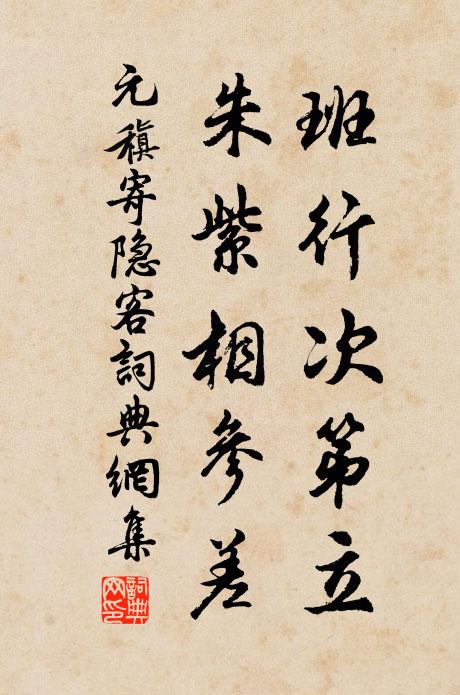 班行次第立
朱紫相參差
元稹寄隐客詞典網集
詞典網印